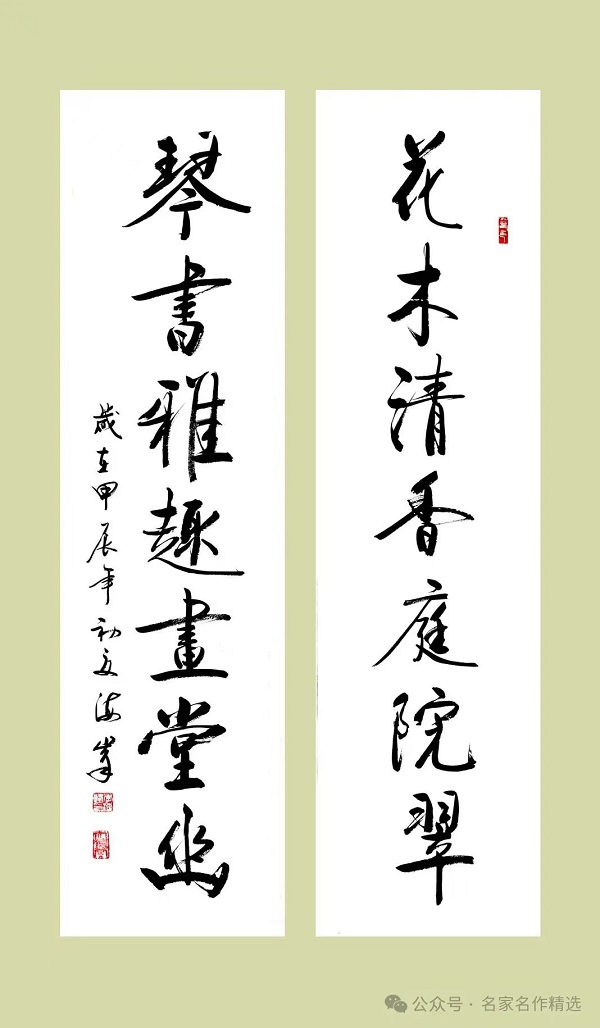 花木清香庭院翠
琴書雅趣畫堂幽
歲在甲辰年初夏海峯
公众号·名家名作精选